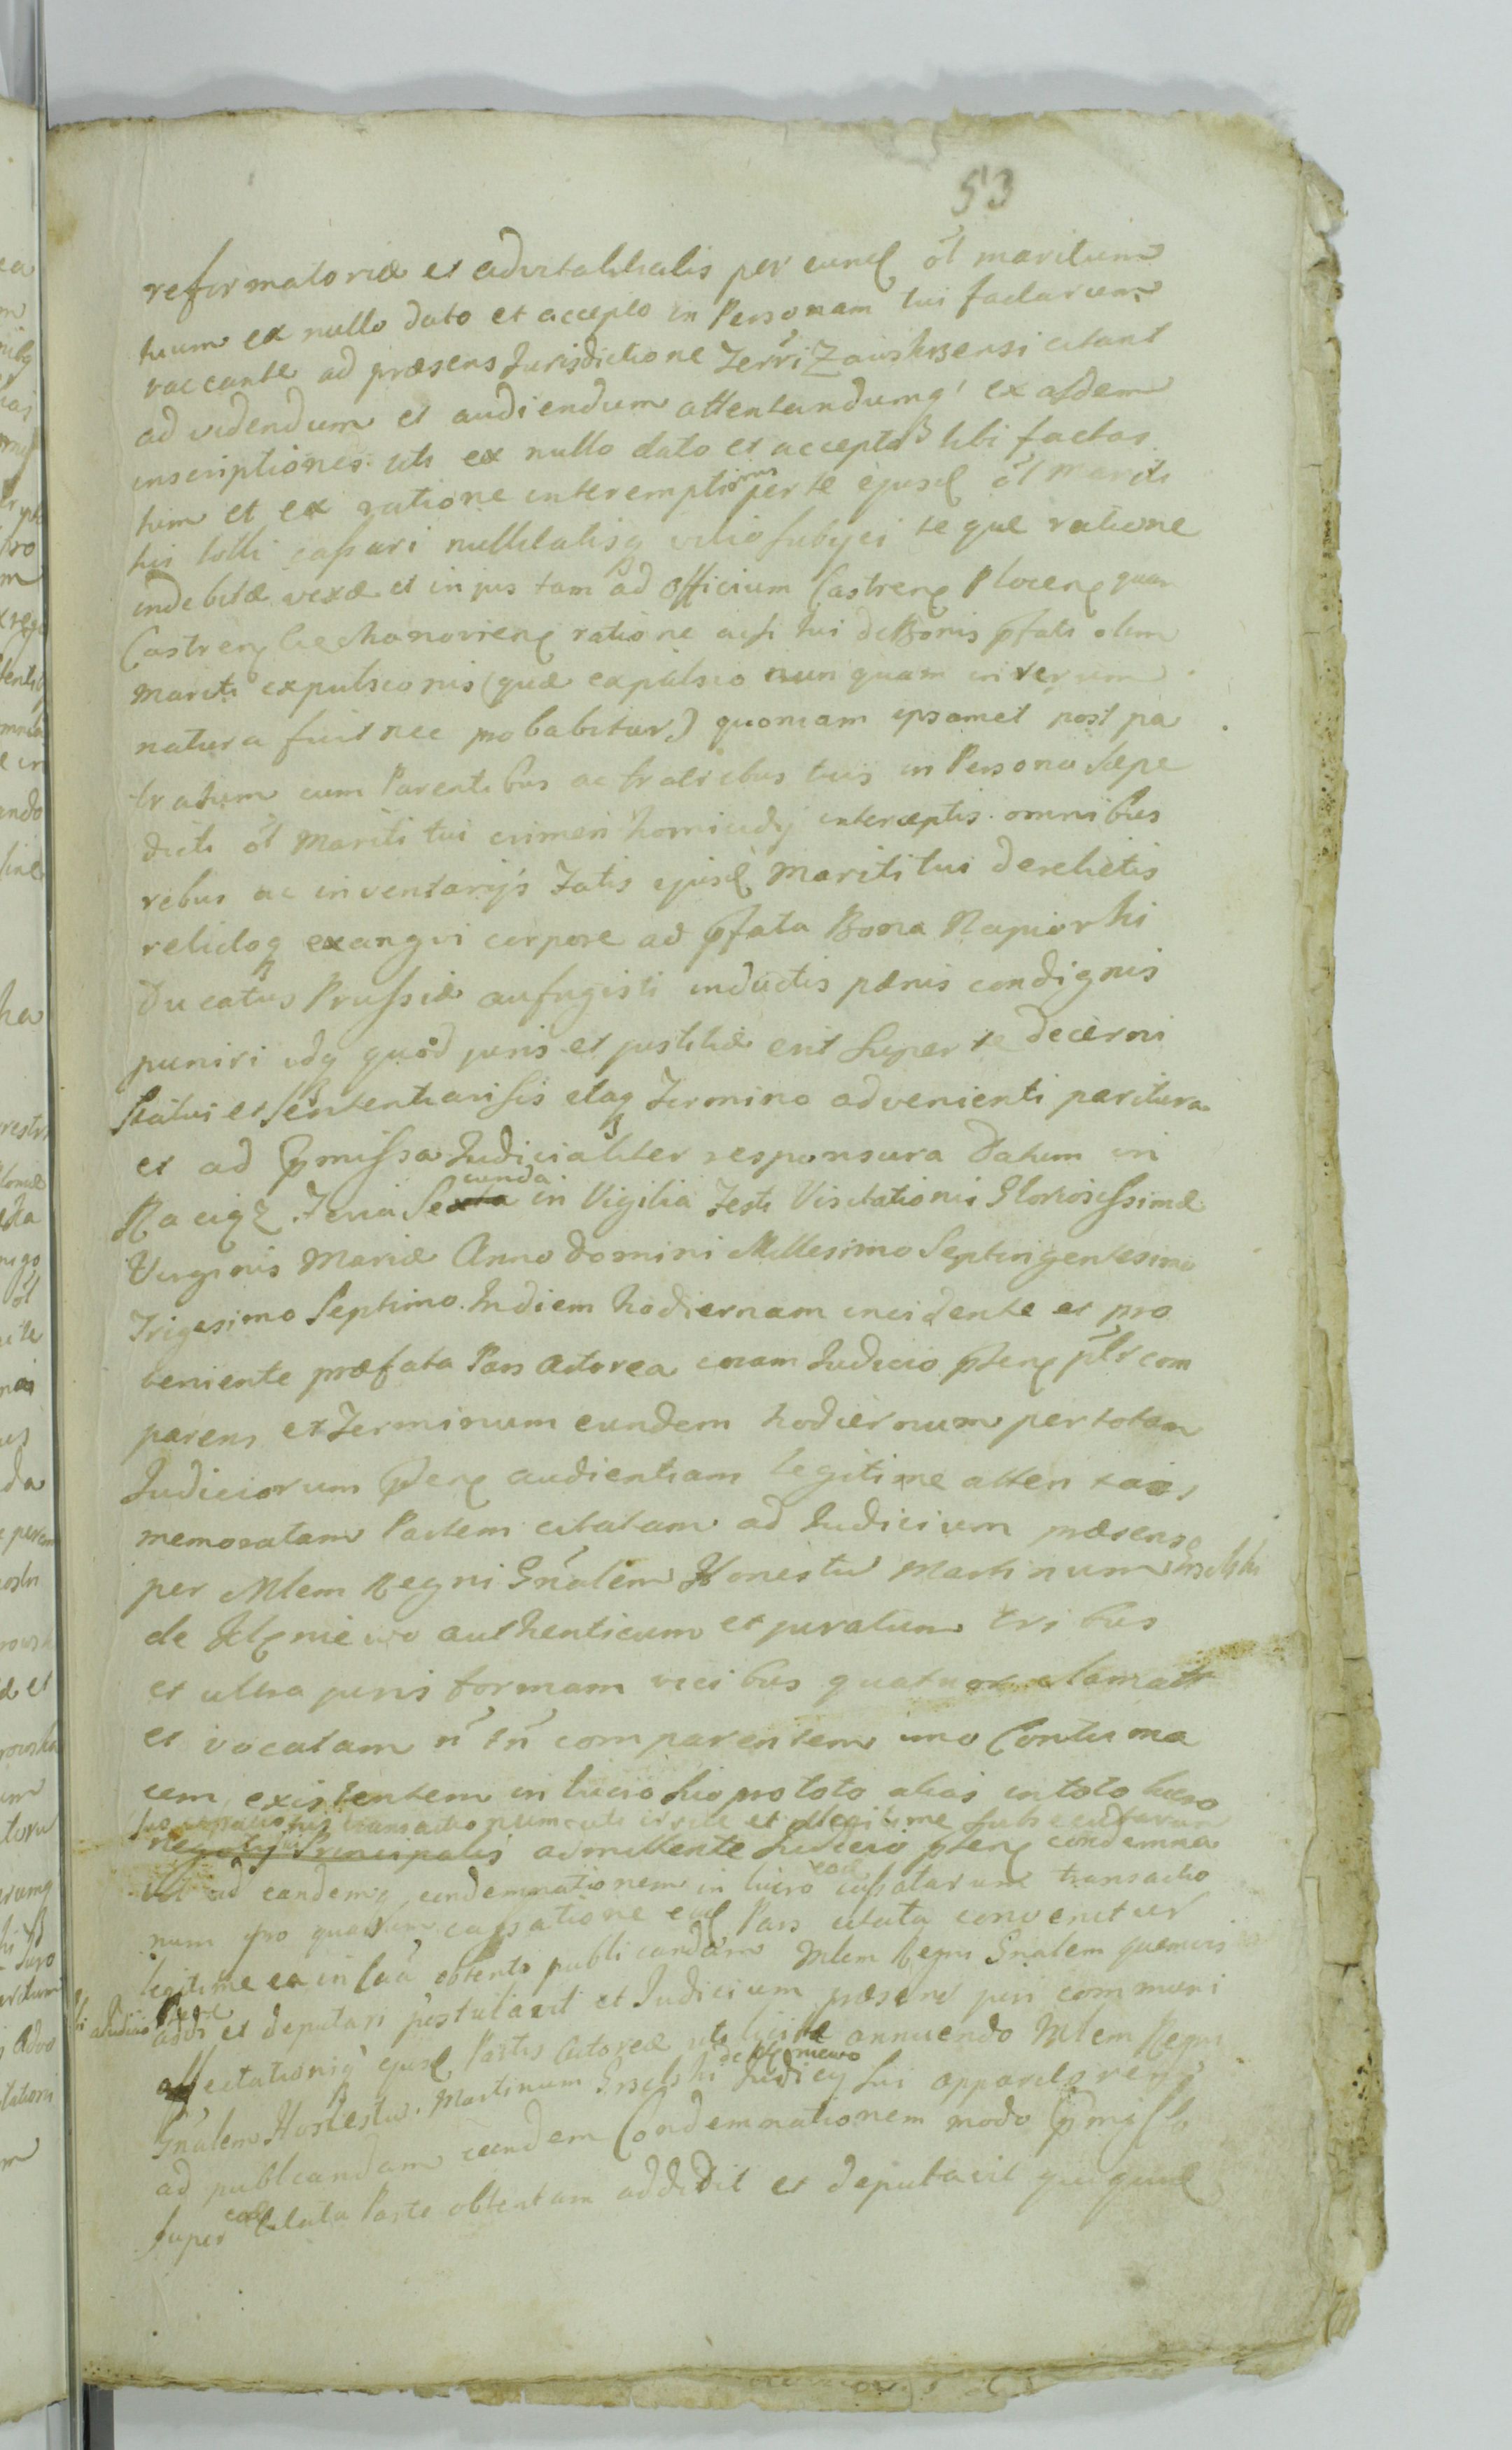 53
reformatoriæ et advitalitialis per eund ol maritum
tuum ex nullo dato et accepto in Personam tui factarum
vaccante ad præsens Jurisdictione Terri Zawskrzensi citant
ad videndum et audiendum attentandumq ex asdem
inscriptiones uti ex nullo dato et accepto tibi factas
tum et ex ratione interemptionis per te ejusd ol mariti
tui tolli cassari nullitatisq vitio subyci te que ratione
indebitæ vexæ et injus tam ad Officium Castren Plocen quam
Castren Ciechanovien ratione acsi tui de Bonis pfati olim
Mariti expulsionis (quæ expulsio nun quam in rerum
natura fuit nec probabitur) quoniam ipsamet post pa
tratum cum Parentibus ac fratribus tuis in Persona sæpe
dicti ol Mariti tui crimen homicidy interceptis omnibus
rebus ac inventarys Zatis ejusd Mariti tui derelictis
relictoq exangvi corpore ad pfata Bona Napiorki
Ducatus Prussiæ aufugisti inductis pænis condignis
puniri idq quod juris et justitiæ erit super te decerni
statui et sententiari sis itaq Termino advenienti paritura
et ad pmissa Judicialiter responsura Datum in
Raciąz Feria Sexta cunda in Vigilia Festi Visitationis Gloriosissimæ
Virginis Mariæ Anno Domini Millesimo Septingentesimo
Trigesimo Septimo. In diem hodiernam incidente et pro
veniente præfata Pars Actorea coram Judicio pten plr com
parens et Terminum eundem hodiernum per totam
Judiciorum pten audientiam legitime atten tans
memoratam Partem citatam ad Judicium præsens
per Mlem Regni Gnalem Honestu Martinum
de authenticum et juratum tribus
et ultra juris formam vicibus quatuor clamatt
et vocatam n tn comparentem imo Contuma
cem existentem in lucro suo pro toto alias in toto lucro
suo transactionum uti et illegitime subsecutarum
negotij sui Principalis admittente Judicio pten condemna
vit ad eandemq condemnationem in lucro ead cassatarum transactio
num pro quarum cassatione ead Pars citata convenitur
legitime ea in caa obtento publicandam Mlem Regni Gnalem quemvis
addi et deputari postulavit et Judicium præsens juri communi
affectationiq ejusd Partis Actoreæ uti licitæ annuendo Mlem Regni
Gnalem Honestu. Martinum de Judicy sui apparitorem
ad publicandam eandem Condemnationem modo pmisso
super ead Citata Parte obtentam addidit et deputavit qui quid